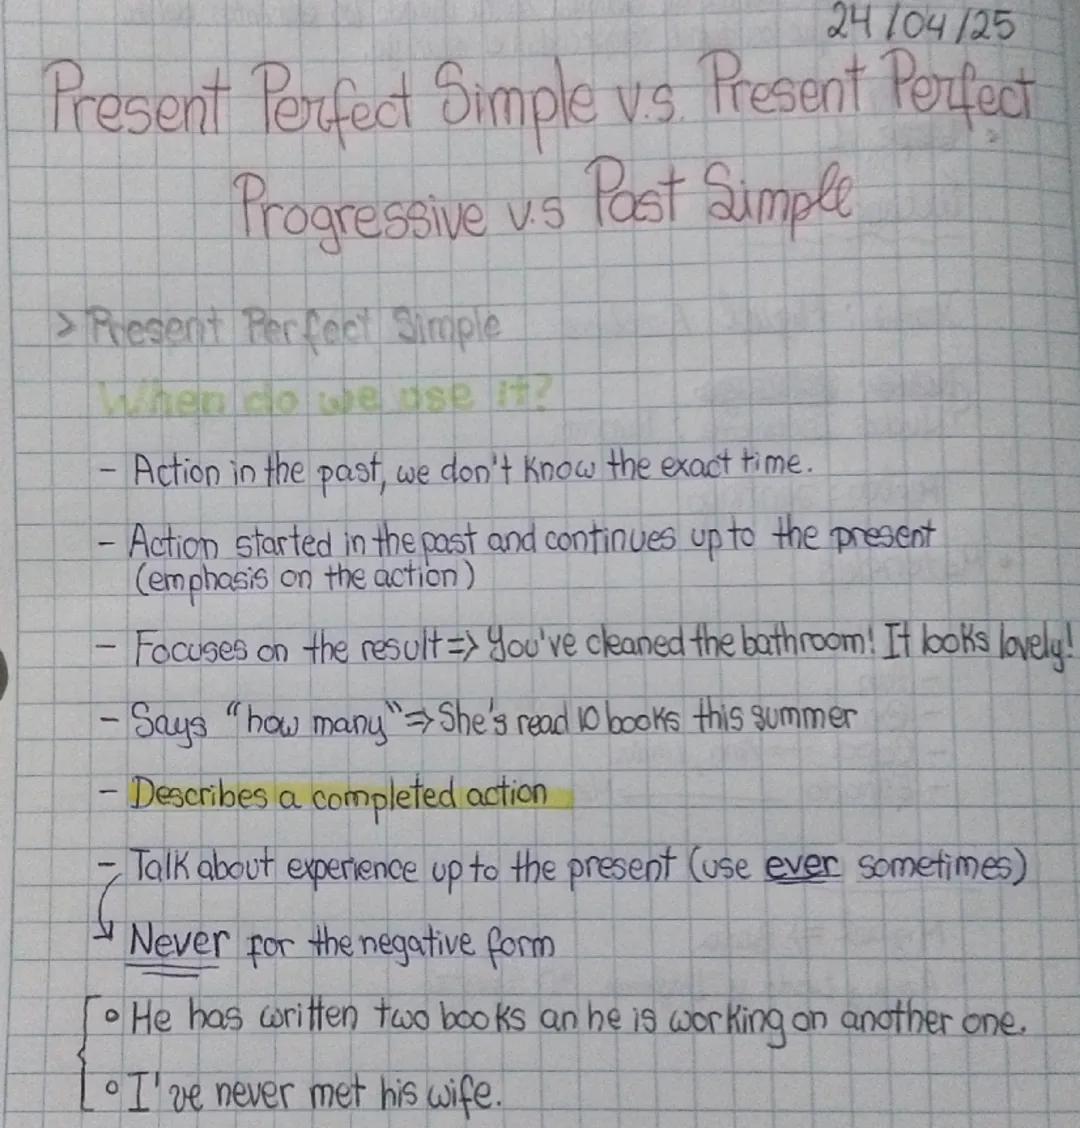 24/04/25
Present Perfect Simple v.s. Present Perfect
Progressive v.s Past Simple
> Present Perfect Simple
When do we use it?
- Action in the past, we don't know the exact time.
- Action started in the past and continues up to the present
(emphasis on the action)
- Focuses on the result => You've cleaned the bathroom! It looks lovely!
- Says "how many" => She's read 10 books this summer
- Describes a completed action
- Talk about experience up to the present (use ever sometimes)
Never for the negative form
o He has written two books an he is working on another one.
o I've never met his wife.